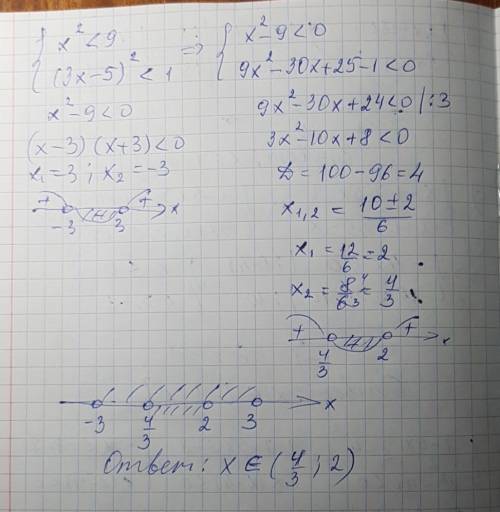 { x² < 9 => { x² - 9 < 0
(3x - 5)² < 1 9x² - 30x + 25 - 1 < 0
x² - 9 < 0
(x - 3)(x + 3) < 0
x₁ = 3 ; x₂ = -3
+ - + x
-3 3
9x² - 30x + 24 < 0 | : 3
3x² - 10x + 8 < 0
D = 100 - 96 = 4
x₁,₂ = (10 ± 2)/6
x₁ = 12/6 = 2
x₂ = 8⁴/6₃ = 4/3
+ - + x
4/3 2
x
-3 4/3 2 3
Ответ: x ∈ (4/3 ; 2)